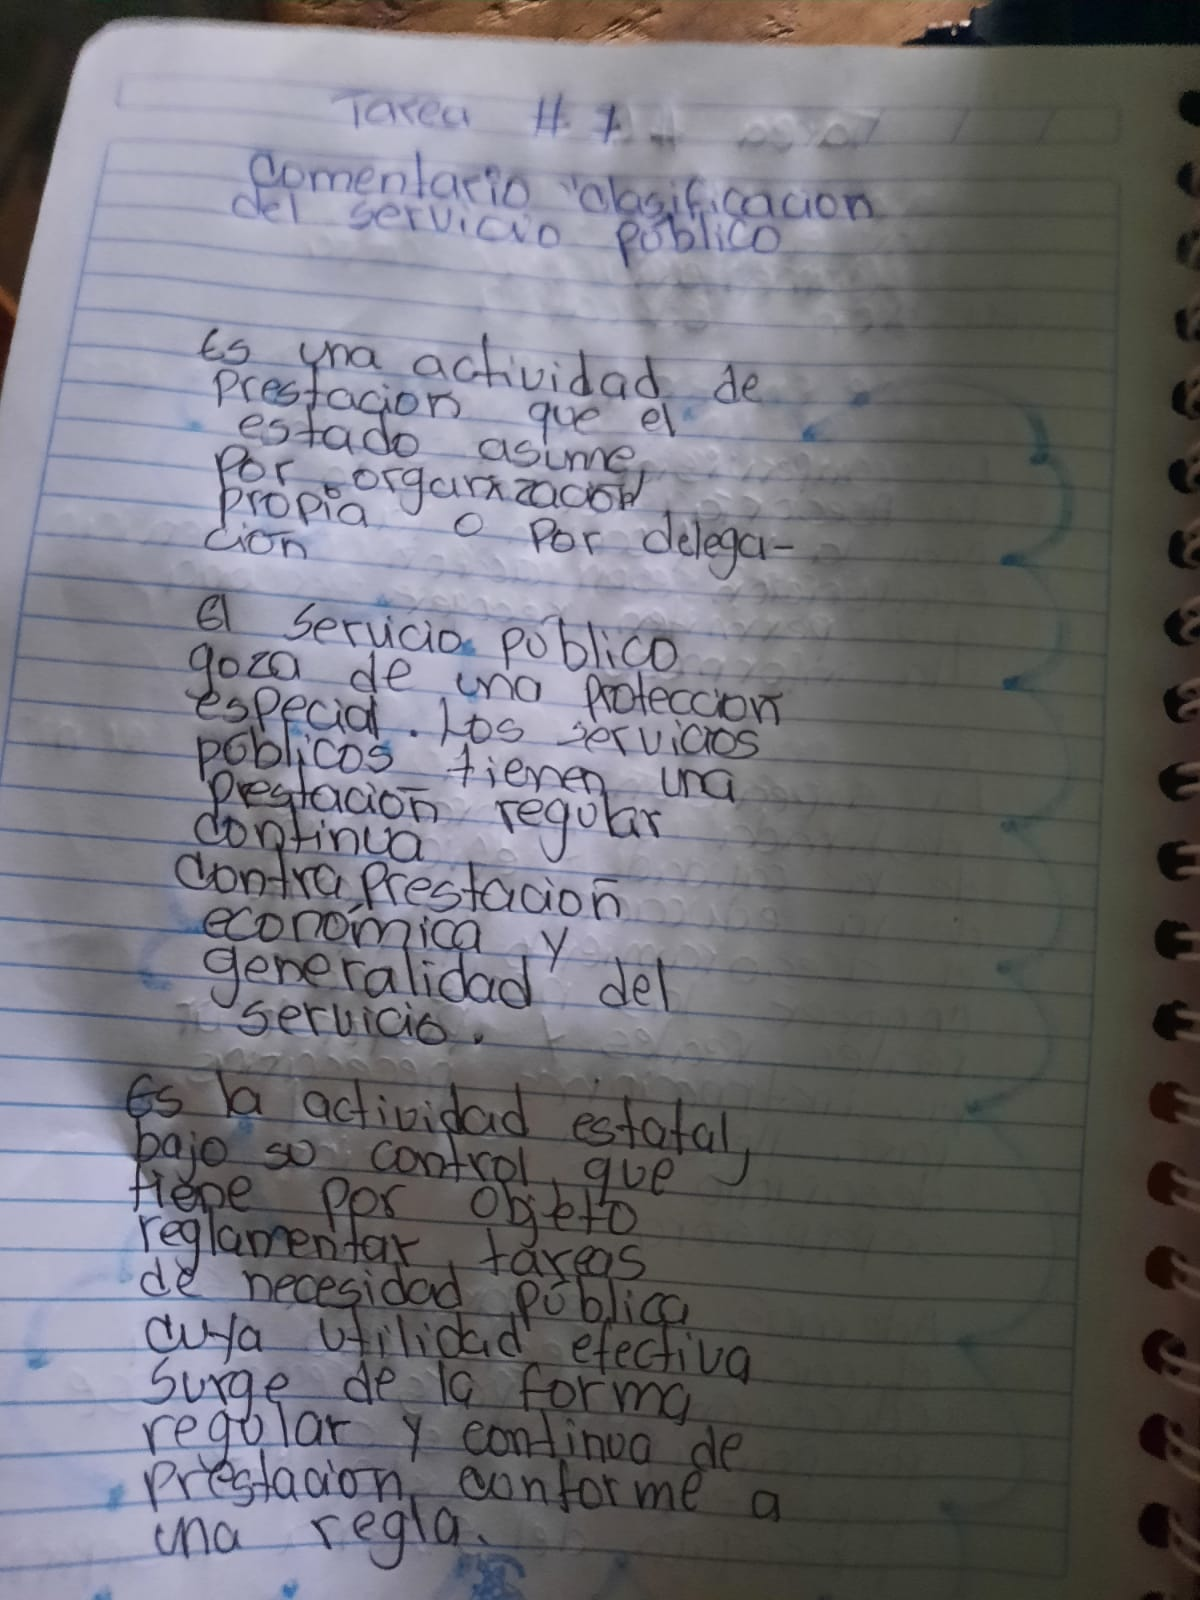 Tarea # 1
Comentario "clasificacion
del servicio público
Es una actividad de
Prestacion que el
estado asume,
Por organización
propia o por delega-
ción
El servicio público
goza de una protección
especial. Los servicios
públicos tienen una
prestación regular
continua
Contra prestación
económica y
generalidad del
servicio.
Es la actividad estatal,
bajo su control, que
tiene por objeto
reglamentar tareas
de necesidad pública
cuya utilidad efectiva
surge de la forma
regular y continua de
prestación conforme a
una regla.